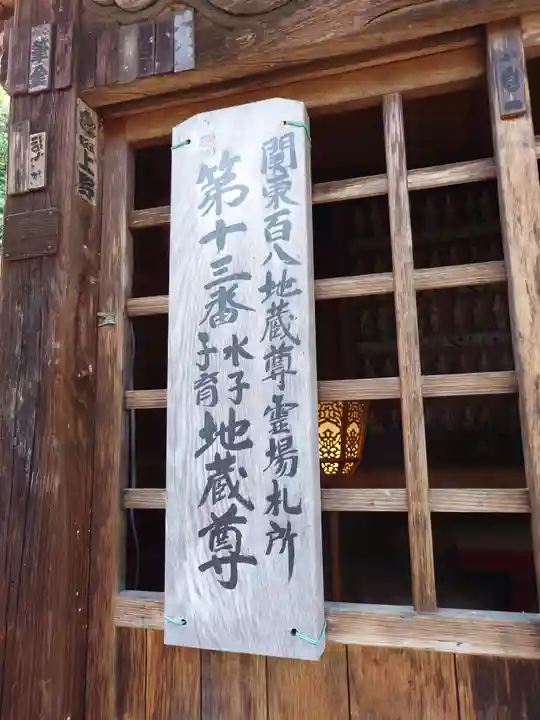 関東百八地蔵尊霊場札所
第十三番 水子 子育 地蔵尊